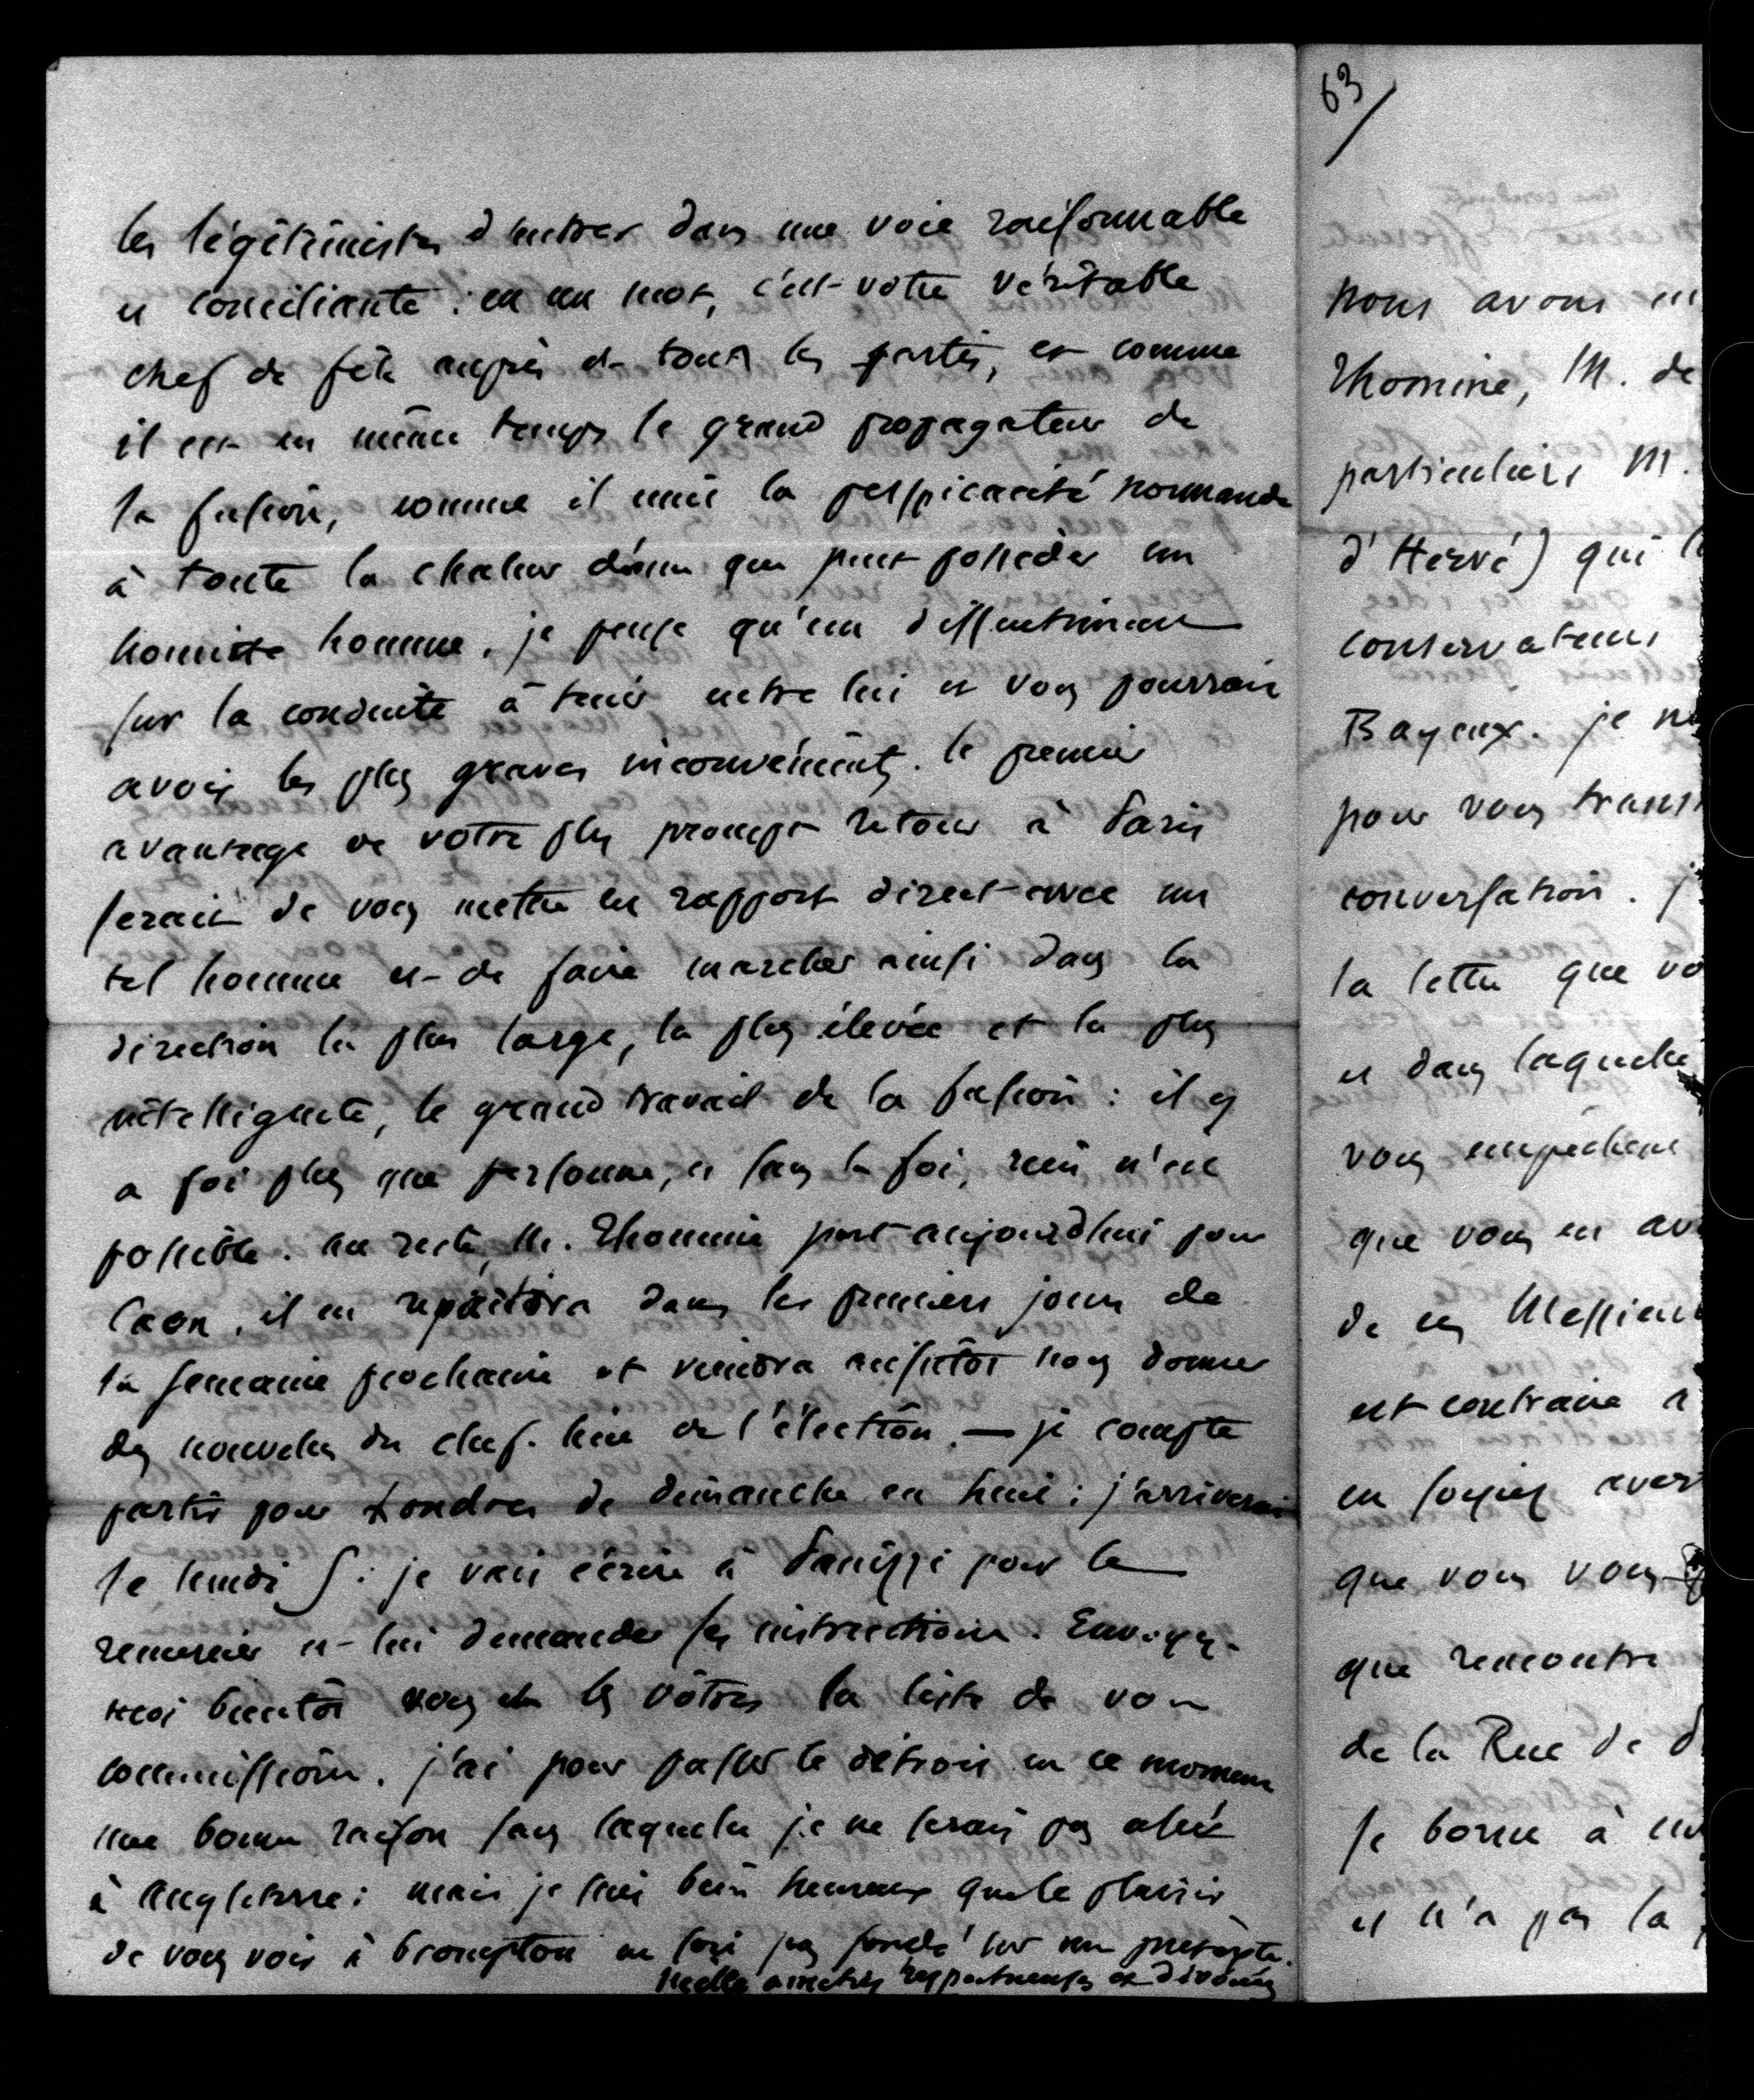 les légitimistes d'entrer dans une voie raisonnable
et conciliante : en un mot, c'est votre véritable
chef de file auprès de tous les partis, et comme
il est en même temps le grand propagateur de
la fusion, comme il unit la perspicacité normande
à toute la chaleur d'âme que peut posséder un
honnête homme, je pense qu'un dissentiment
sur la conduite à tenir entre lui et vous pourrait
avoir les plus graves inconvénients. le premier
avantage de votre plus prompt retour à Paris
serait de vous mettre en rapport direct avec un
tel homme et de faire marcher ainsi dans la
direction la plus large, la plus élevée et la plus
intelligente, le grand travail de la fusion : il y
a foi plus que personne, et sans la foi, rien n'est
possible. au reste, M. Thomine part aujourd'hui pour
Caen, il en repartira dans les premiers jours de
la semaine prochaine et viendra aussitôt nous donner
des nouvelles du chef-lieu de l'élection. — je compte
partir pour Londres de dimanche en huit : j'arriverai
le lundi 5 : je vais écrire à Panizzi pour le
remercier et lui demander ses instructions. Envoyez-
moi bientôt vous et les vôtres la liste de vos
commissions. j'ai pour passer le détroit en ce moment
une bonne raison sans laquelle je ne serais pas allé
à Angleterre : mais je suis bien heureux que le plaisir
de vous voir à brompton ne soit pas fondé sur un prétexte.
Mille amitiés respectueuses et dévouées
63
nous avons
Thomine, M. de
particuliers M.
d'Hervé) qui
conservateurs
Bayeux. je
pour vous
conversation.
la lettre que
et dans laquelle
vous empêchent
que vous en
de ces Messieurs
est contraire à
en soyez
que vous vous
que rencontre
de la Rue de
se borne à
et n'a pas la